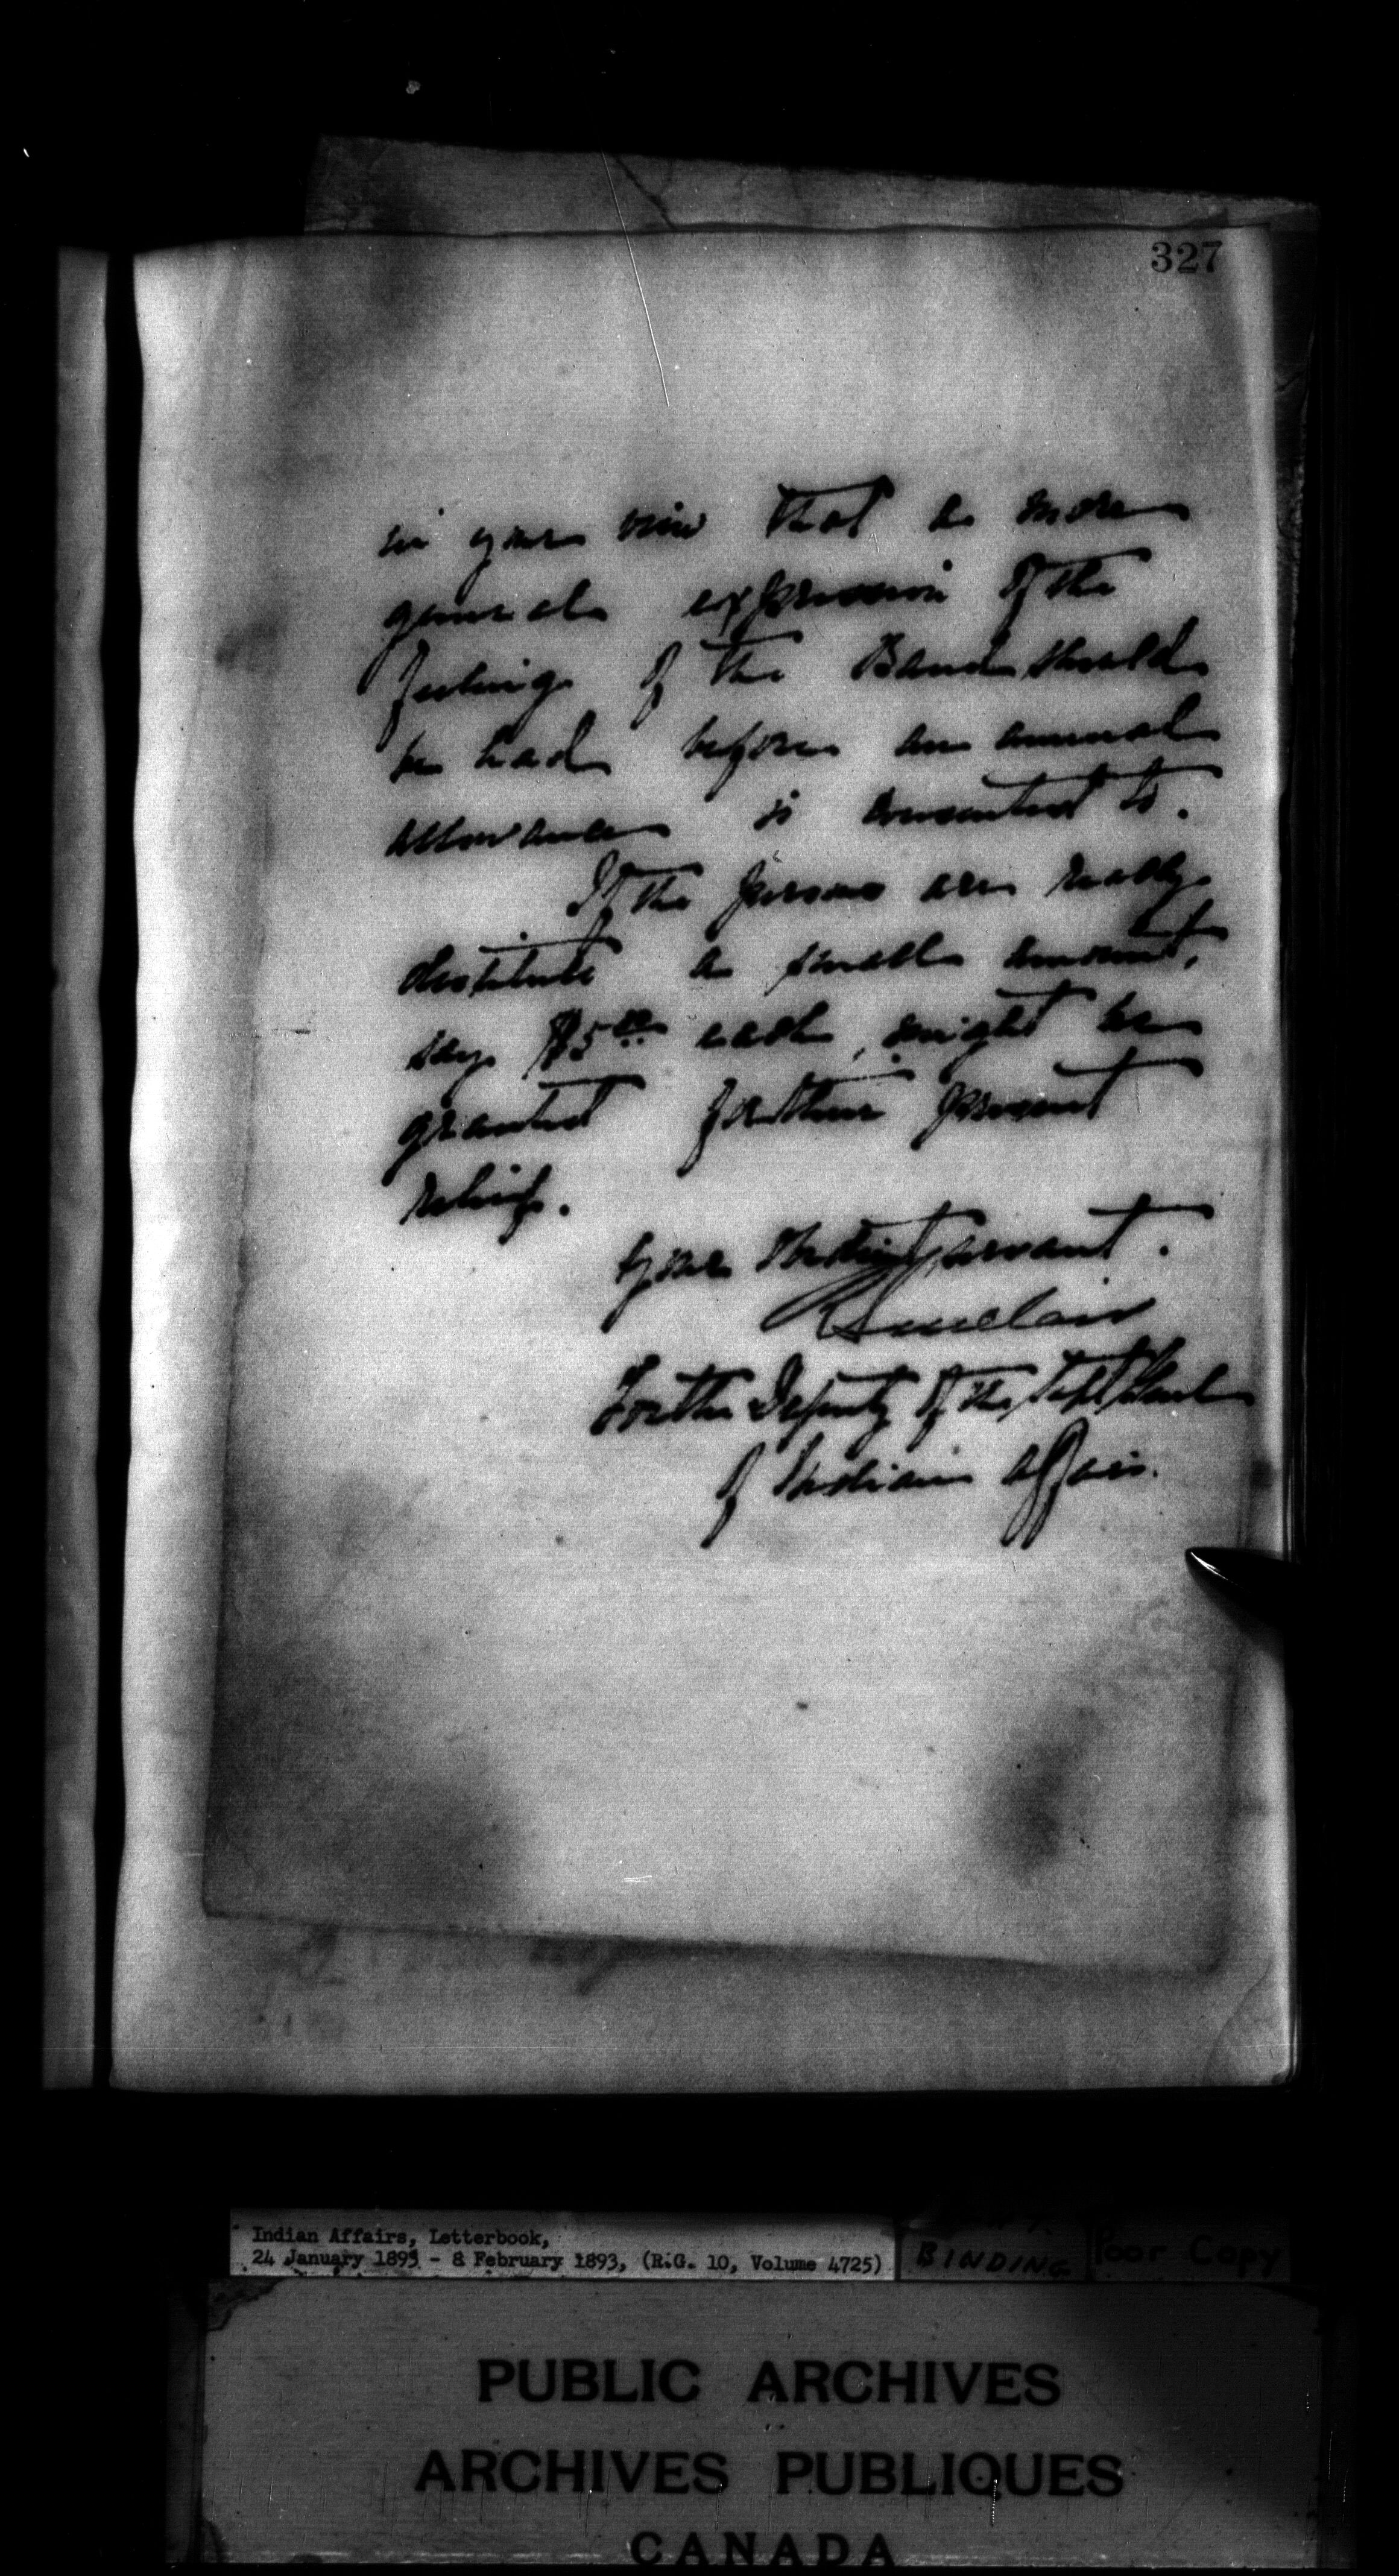 327
in your view that a more
general expression of the
feeling of the Band should
be had before an annual
allowance is consented to.
If the persons are really
destitute a small amount,
say $5.00 each, might be
granted for their present
relief.
Your obedient servant.
R Sinclair
For the Deputy of the Supt General
of Indian Affairs.
Indian Affairs, Letterbook,
24 January 1893 - 8 February 1893, (R.G. 10, Volume 4725)
BINDING
Poor Copy
PUBLIC ARCHIVES
ARCHIVES PUBLIQUES
CANADA